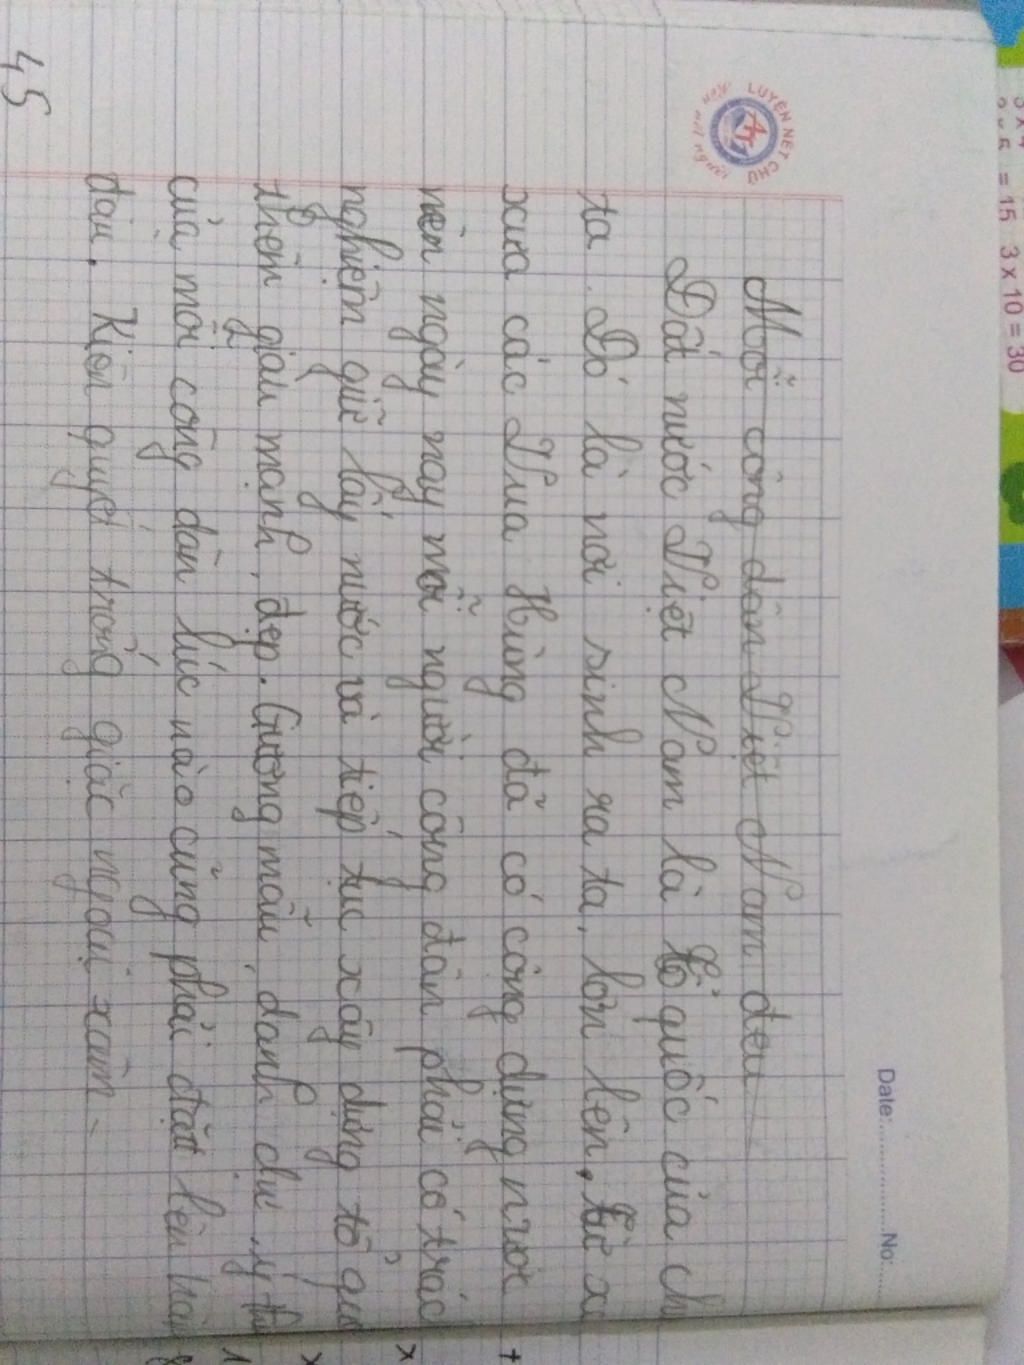 Mỗi công dân Việt Nam đều
Đất nước Việt Nam là tổ quốc của ch
ta. Đó là nơi sinh ra ta, lớn lên, từ x
xưa các Vua Hùng đã có công dựng nước
nên ngày nay mỗi người công dân phải có trác
nghiệm giữ lấy nước và tiếp tục xây dựng tổ quố
thêm giàu mạnh, đẹp. Gương mẫu, danh dự, ý th
của mỗi công dân lúc nào cũng phải đặt lên hàn
đầu. Kiên quyết trống giặc ngoại xâm.
45
LUYỆN NÉT CHỮ
Rèn nết người
Date: No:
= 15 3 x 10 = 30